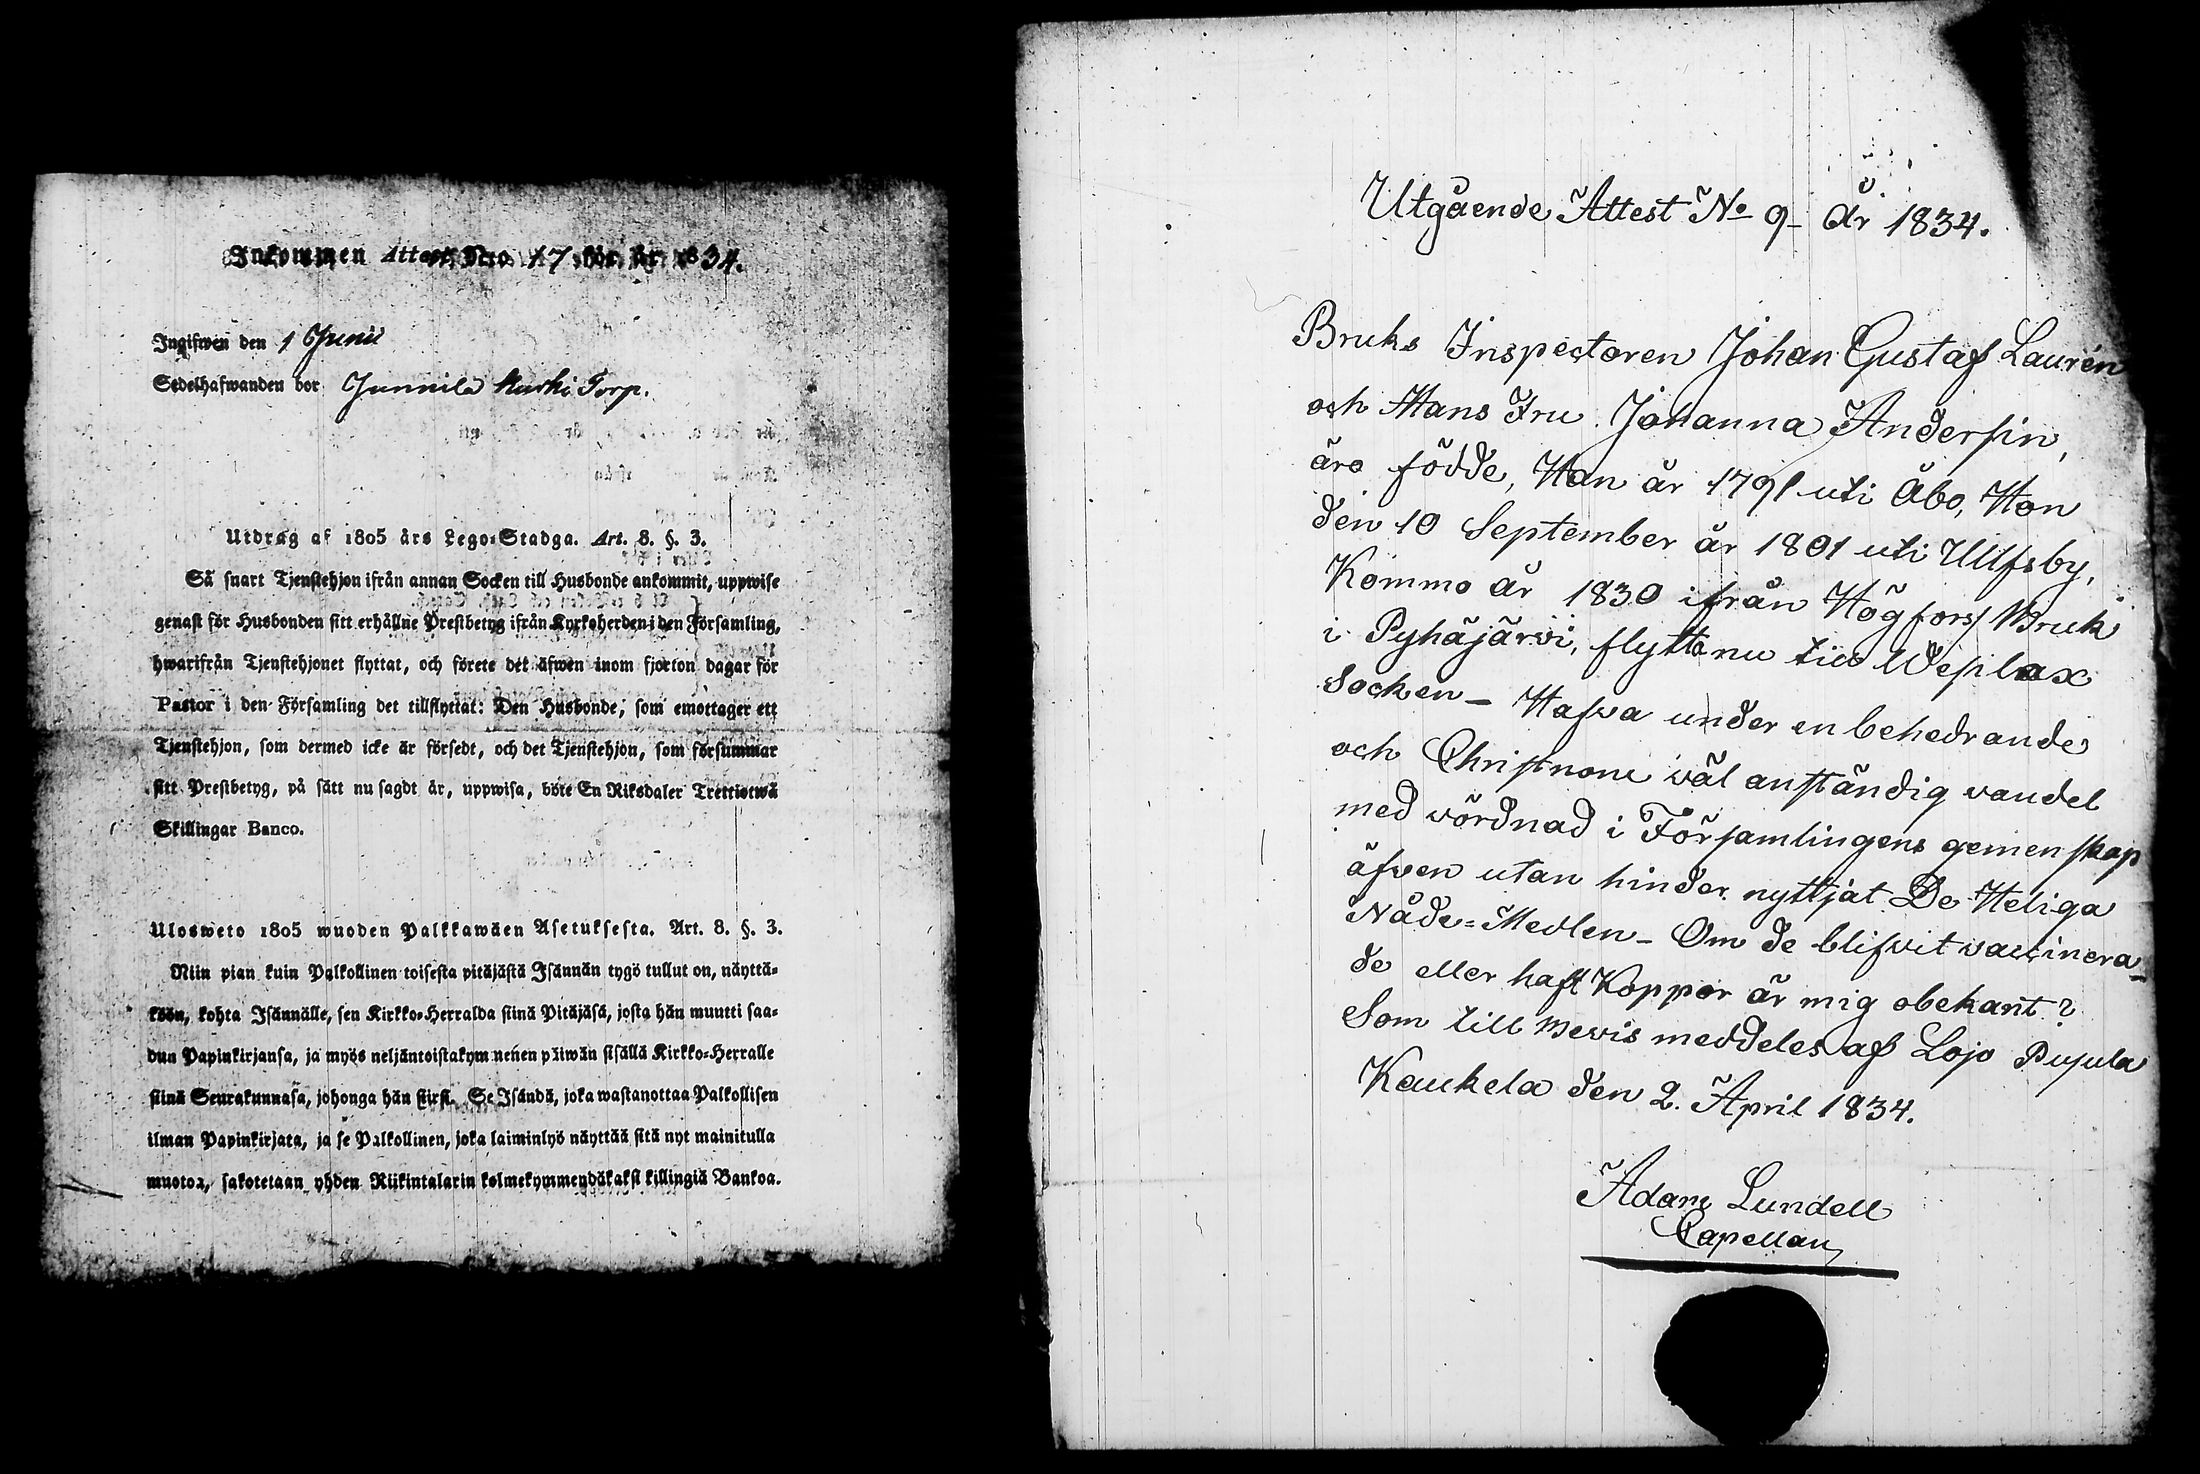 Inkommen Attest Nro 17 för år 1834.
Ingifwen den 1 Junii
Sedelhafwanden bor Junnila Kurki Torp.
Utdrag af 1805 års Lego-Stadga. Art. 8. §. 3.
Så snart Tjenstehjon ifrån annan Socken till Husbonde ankommit, uppwise
genast för Husbonden sitt erhållne Prestbetyg ifrån Kyrkoherden i den Församling,
hwarifrån Tjenstehjonet flyttat, och förete det äfwen inom fjorton dagar för
Pastor i den Församling det tillflyttat: Den Husbonde, som emottager ett
Tjenstehjon, som dermed icke är försedt, och det Tjenstehjon, som försummar
sitt Prestbetyg, på sätt nu sagdt är, uppwisa, böte En Riksdaler Trettiotwå
Skillingar Banco.
Ulosweto 1805 wuoden Palkkawäen Asetuksesta. Art. 8. §. 3.
Niin pian kuin Palkollinen toisesta pitäjästä Isännän tygö tullut on, näyttä-
köön, kohta Isännälle, sen Kirkko-Herralda siinä Pitäjäsä, josta hän muutti saa-
dun Papinkirjansa, ja myös neljäntoistakymmenen päiwän sisällä Kirkko-Herralle
siinä Seurakunnasa, johonga hän siirsi. Se Isändä, joka wastanottaa Palkollisen
ilman Papinkirjata, ja se Palkollinen, joka laiminlyö näyttää sitä nyt mainitulla
muotoa, sakotetaan yhden Riikintalarin kolmekymmendäkaksi killingiä Bankoa.
Utgående Attest No 9 år 1834.
Bruks Inspectoren Johan Gustaf Laurén
och Hans Fru Johanna Anderssin,
äro födde, Han år 1791 uti Åbo, Hon
den 10 September år 1801 uti Ulfsby,
Kommo år 1830 ifrån Högfors Bruk
i Pyhäjärwi, flytta nu till Wesilax
Socken - Hafva under en behedrande
och Christnom wäl anständig vandel
med wördnad i Församlingens gemenskap
äfven utan hinder nyttjat De Heliga
Nåde-Medlen - Om de blifvit vaccinera-
de eller haft Koppor är mig obekant?
Som till bevis meddeles af Lojo Pusula
Kaukela den 2. April 1834.
Adam Lundell
Capellan